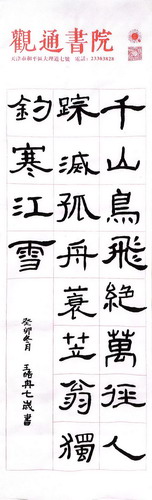 觀通書院
天津市和平區大理道七號 電話：23383828
千山鳥飛絕萬徑人
踪滅孤舟蓑笠翁獨
釣寒江雪
癸卯冬月
王皓冉七歲書